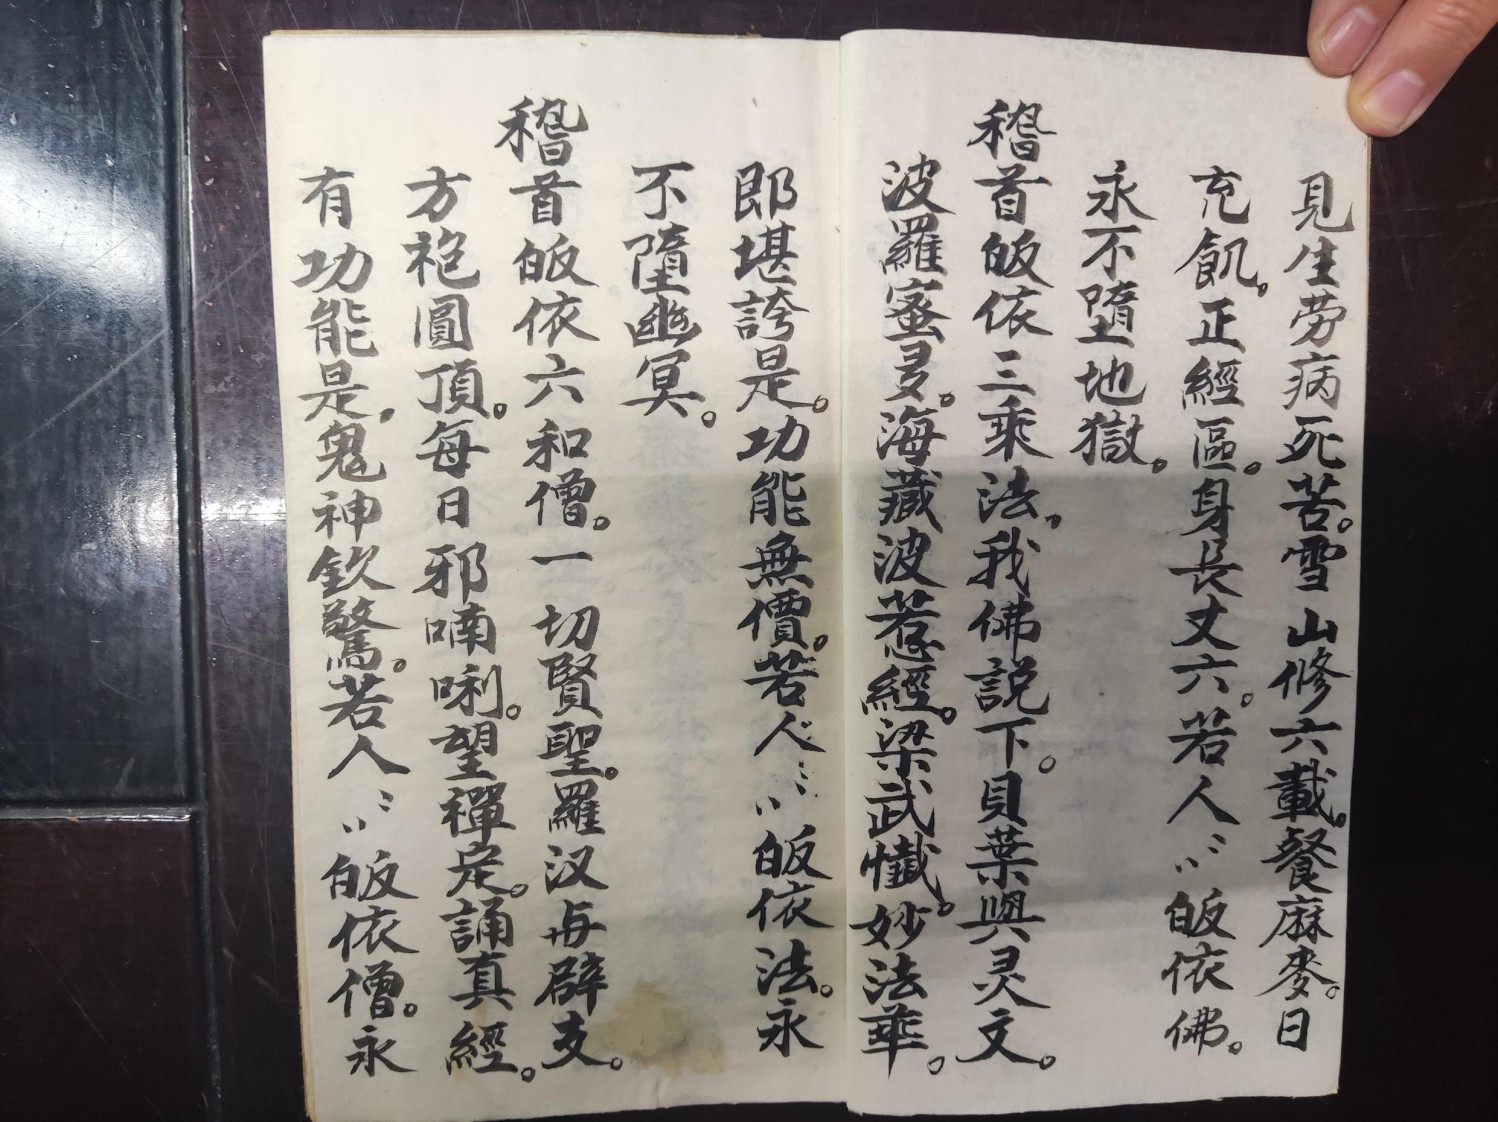 見生劳病死苦。雪山修六載。餐麻麥。日
充飢。正經區。身長丈六。若人〻〻皈依佛。
永不墮地獄。
稽首皈依三乘法。我佛説下。貝葉與灵文。
波羅蜜多。海藏波若經。梁武懺。妙法華。
郎堪誇是。功能無價。若人〻〻皈依法。永
不墮幽冥。
稽首皈依六和僧。一切賢聖。羅汉与辟支。
方袍圓頂。每日邪喃唎。望禪定。誦真經。
有功能是。鬼神欽驚。若人〻〻皈依僧。永